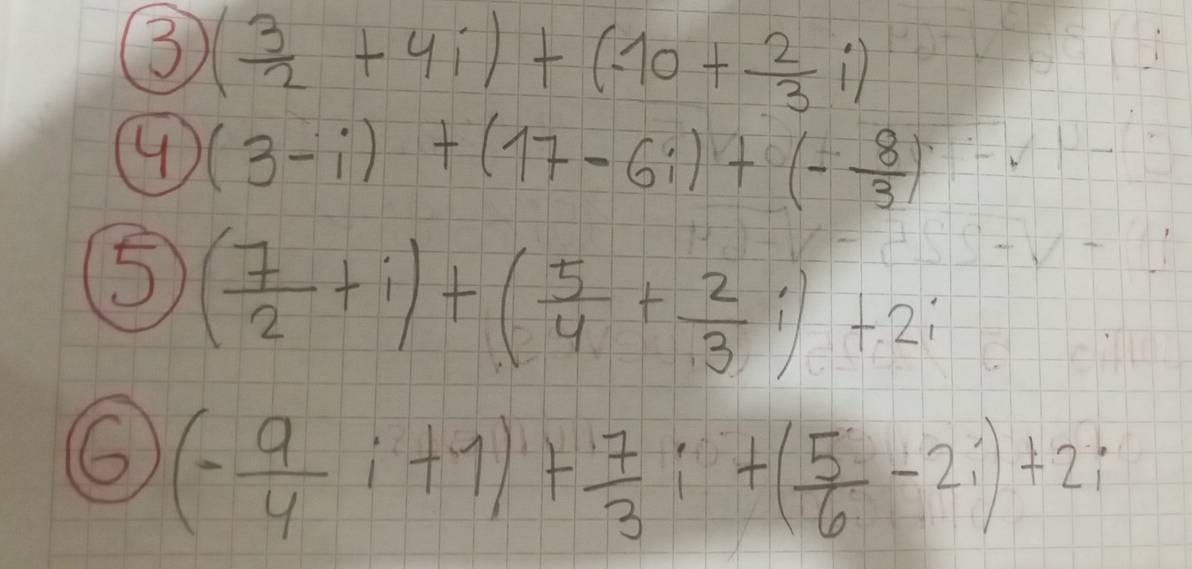 ③ (3/2 + 4i) + (-10 + 2/3 i)
④ (3 - i) + (17 - 6i) + (- 8/3)
⑤ (7/2 + i) + (5/4 + 2/3 i) + 2i
⑥ (- 9/4 i + 1) + 7/3 i + (5/6 - 2i) + 2i